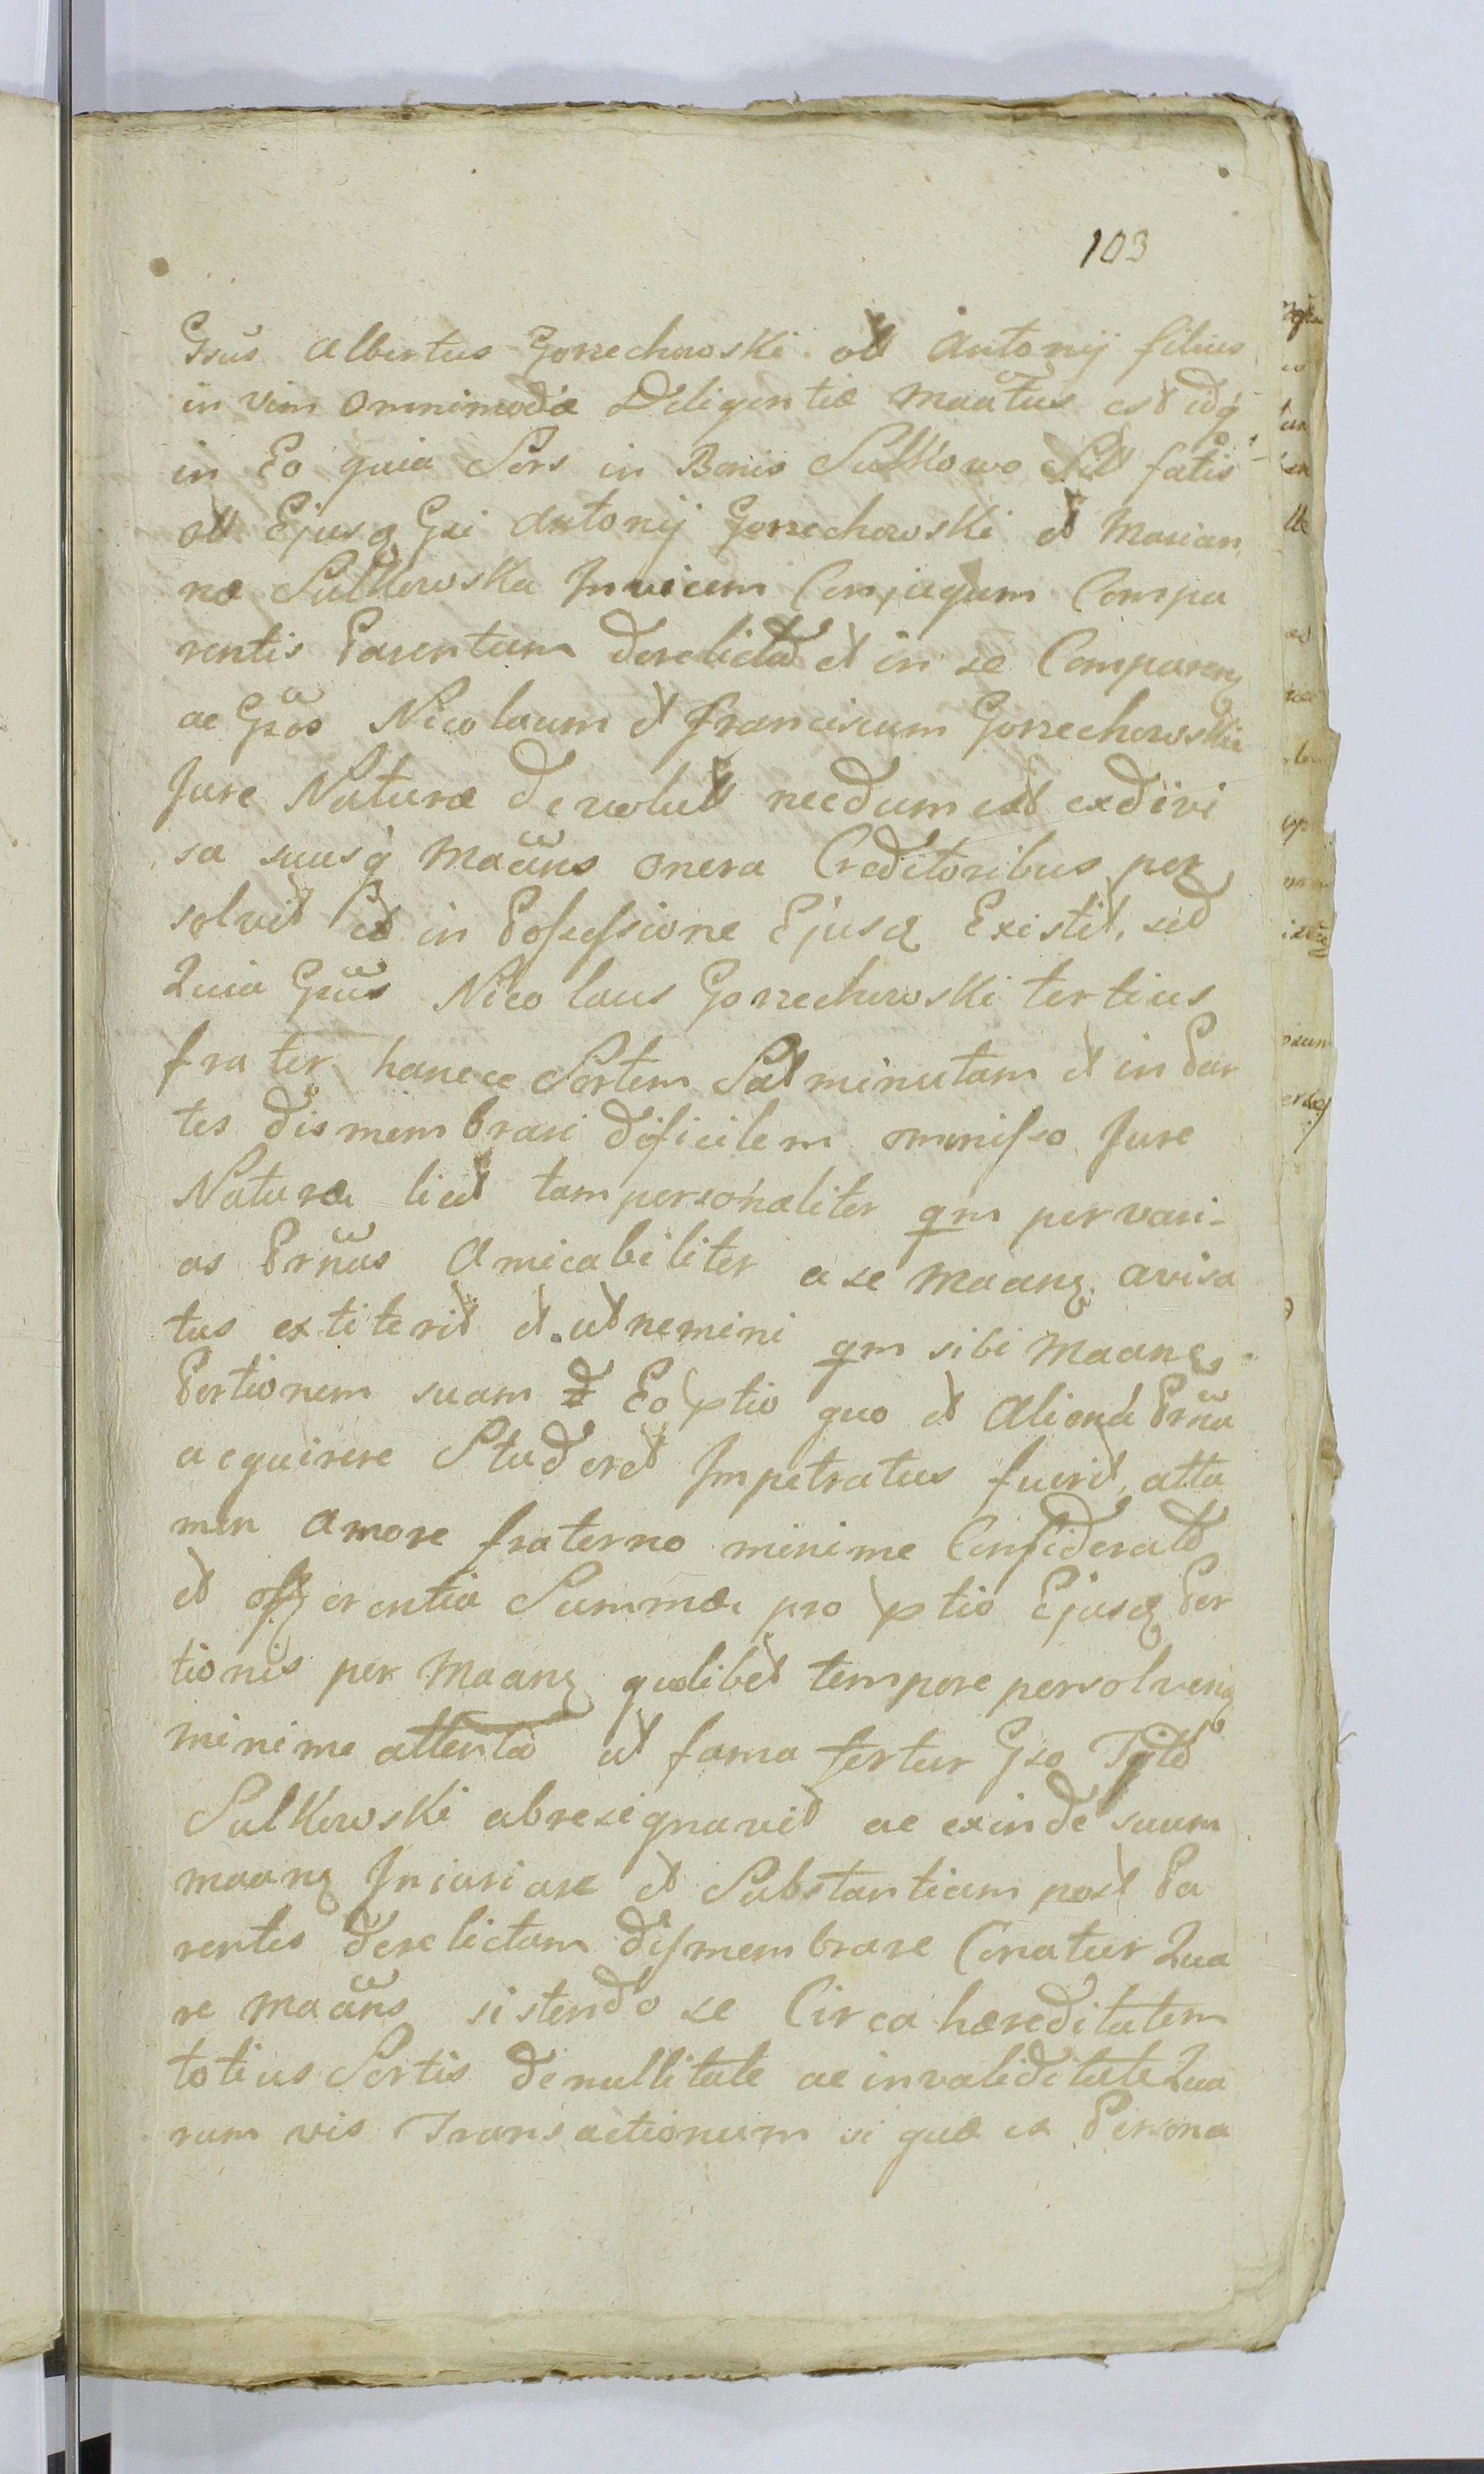 103
Gsus Albertus Gorzechowski olt Antonij filius
in vim omnimodæ Diligentiæ Maatus est idq
in Eo quia Sors in Bonis Sulkowo fatis
olt Ejusq Gsi Antonij Gorzechowski et Marian
næ Sulkowska Invicem Conjugum Compa
rentis Parentum derelicta et in se Comparenq
ac Gsos Nicolaum et Franciscum Gorzechowskie
Jure Naturæ devolut necdum est exdivi
sa suusq Maans onera Creditoribus per
solvit et in Possessione Ejusq Existit, sed
Quia Gsus Nicolaus Gorzechowski tertius
frater hancce Sortem Sat minutam et in Par
tes dismembrari dificilem ommisso Jure
Naturæ licet tam personaliter qm per vari-
as Prnas Amicabiliter a se Maanq avisa
tus extiterit et ut nemini qm sibi Maanq
Portionem suam Eo ptio quo et Aliena Prna
acquirere Studeret Impetratus fuerit, atta
men Amore fraterno minime Considerato
et offerentia Summæ pro ptio Ejusq Por
tionis per Maanq quolibet tempore persolvenq
minime attenta ut fama fertur Gso Ignto
Sulkowski abresignavit ac exinde suum
maanq Injuriare et Substantiam post Pa
rentes derelictam dismembrare Conatur Qua
re Maans sistendo se Circa hæreditatem
totius Sortis de nullitate ac invaliditate Qua
rum vis Transactionum si quæ ex Persona